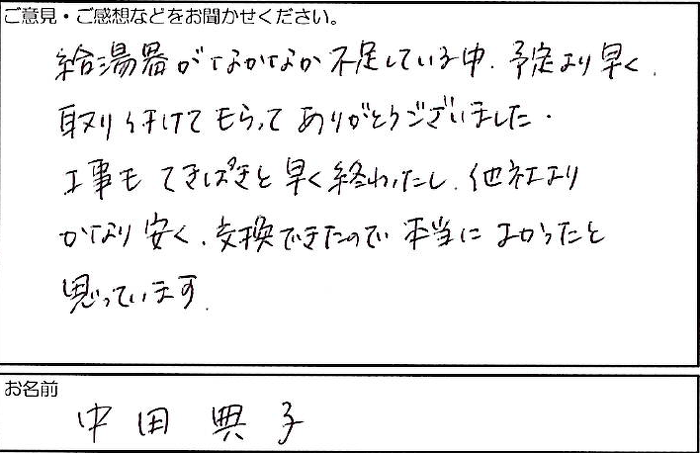 ご意見・ご感想などをお聞かせください。
給湯器がなかなか不足している中、予定より早く、
取り付けてもらってありがとうございました。
工事もてきぱきと早く終わったし、他社より
かなり安く、交換できたので本当によかったと
思っています。
お名前
中田 典子